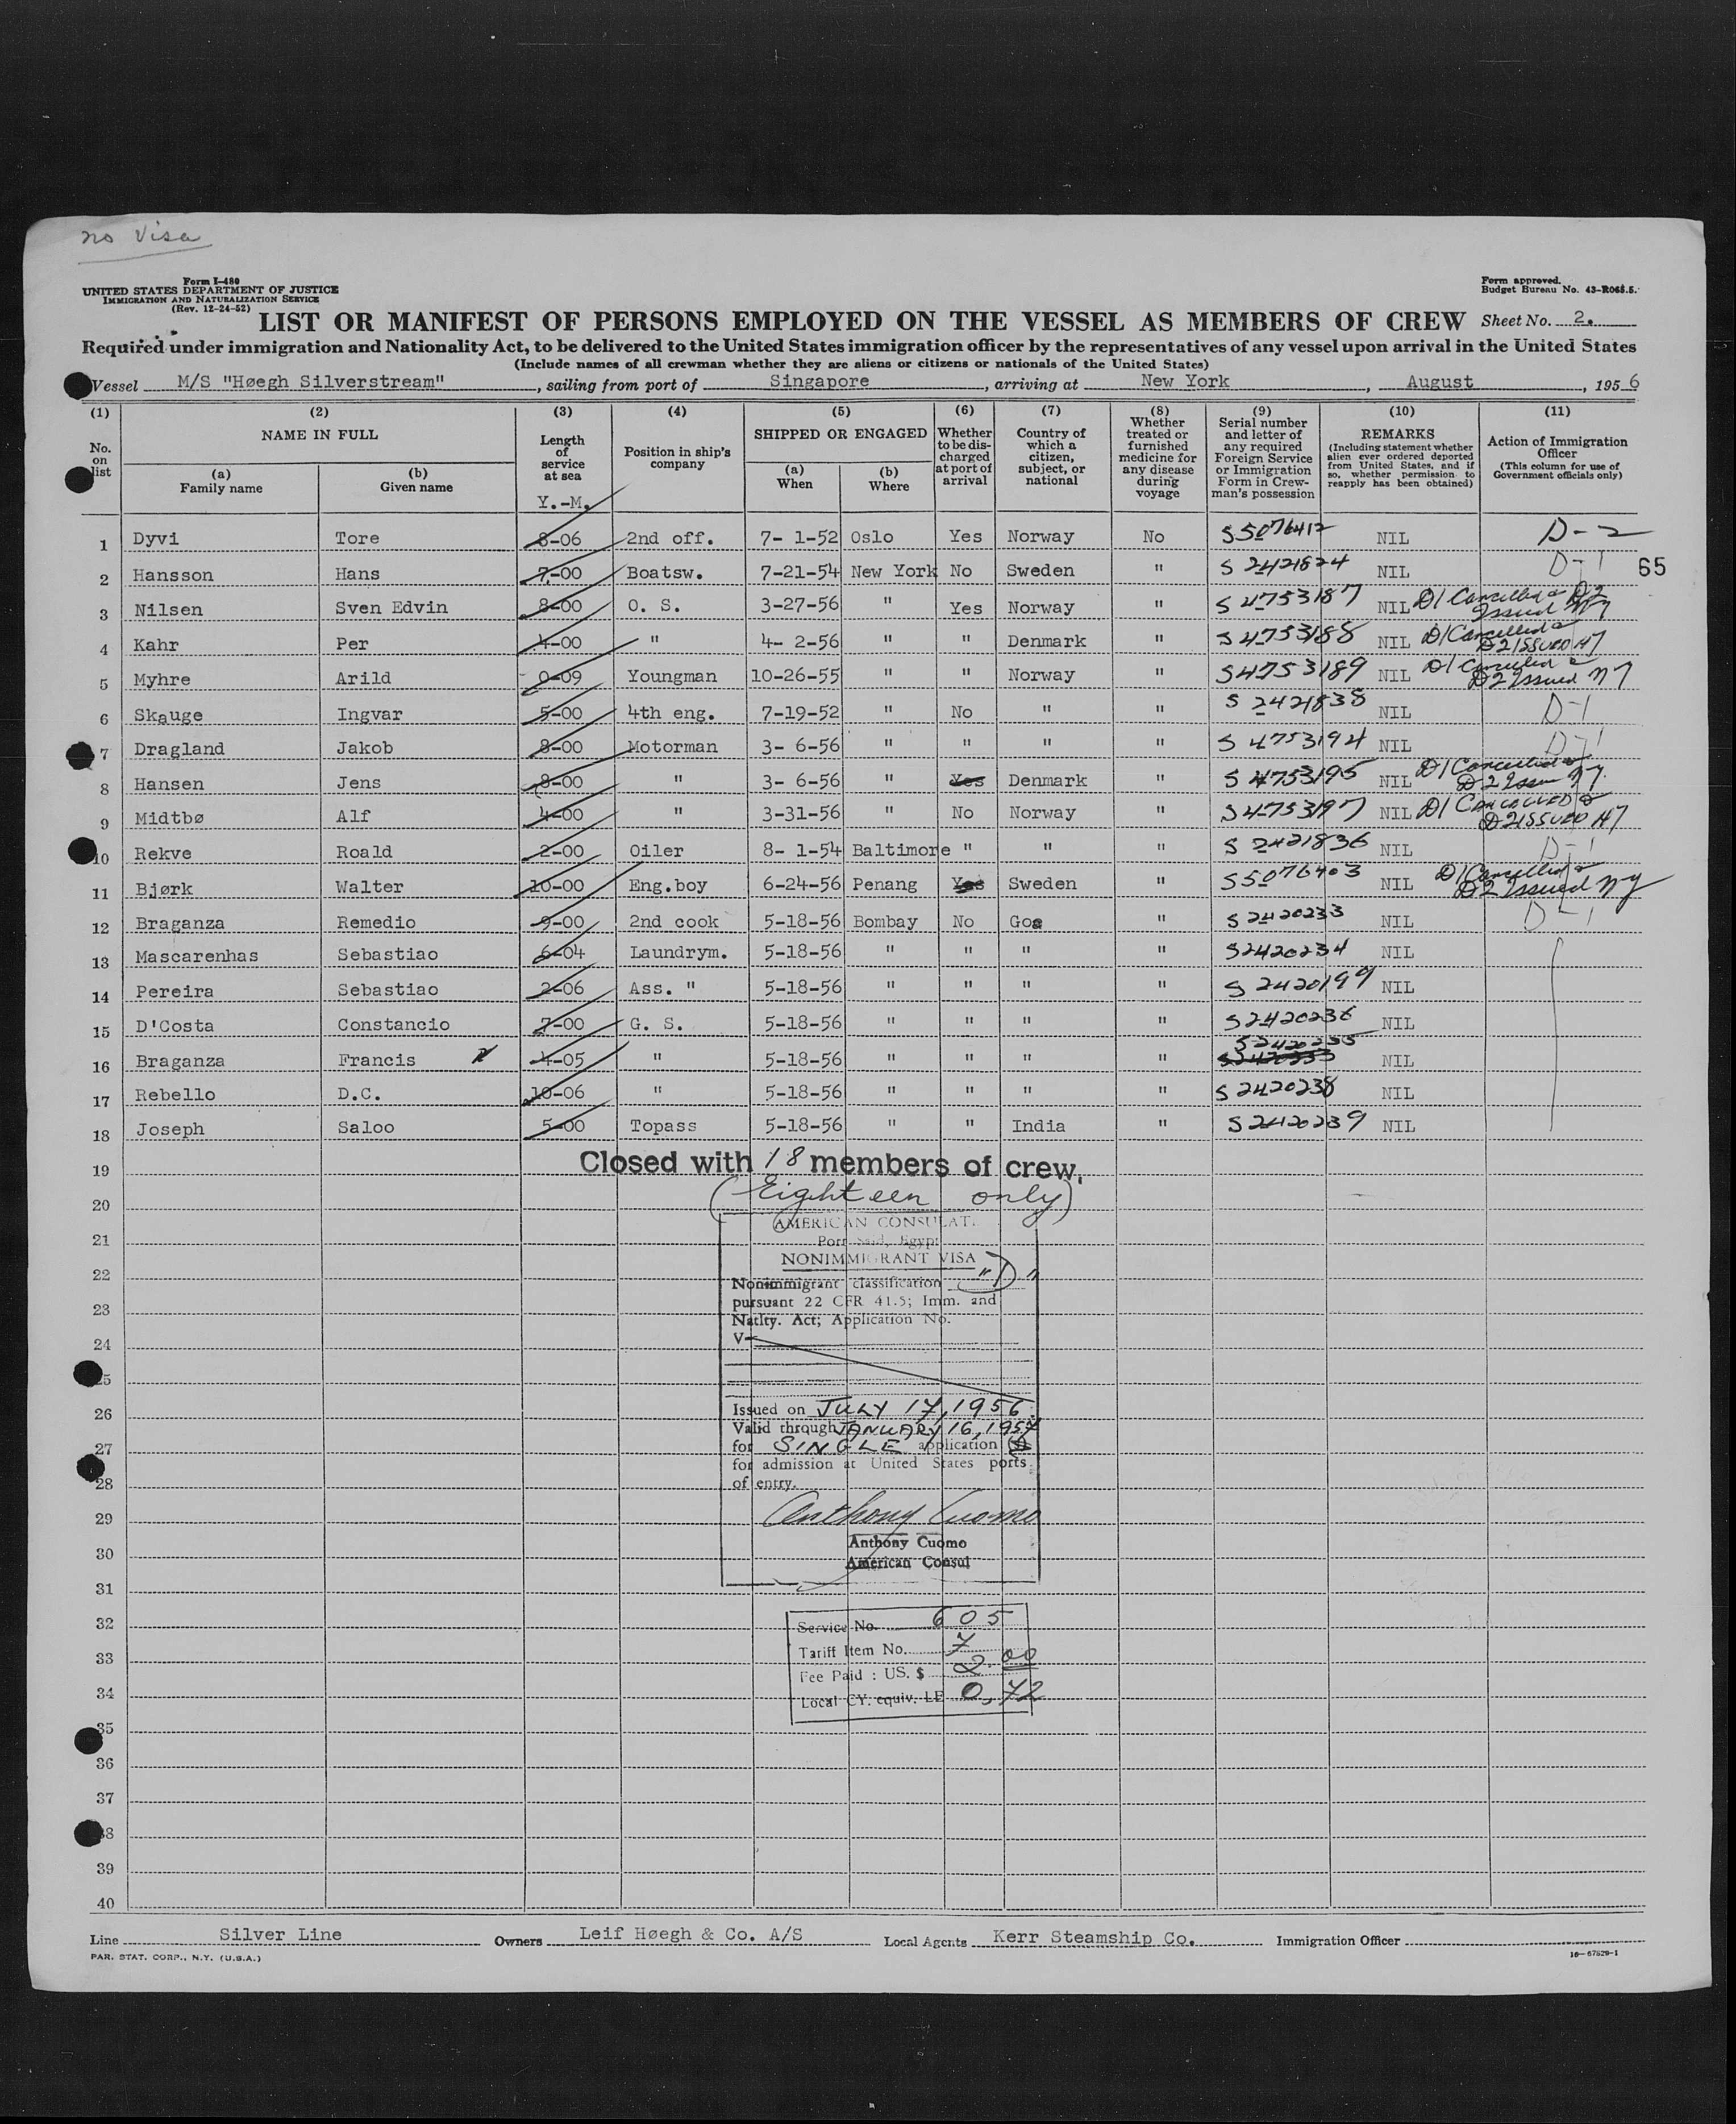 no Visa
Form I-480
UNITED STATES DEPARTMENT OF JUSTICE
IMMIGRATION AND NATURALIZATION SERVICE
(Rev. 12-24-52)
Form approved.
Budget Bureau No. 43-R065.5.
LIST OR MANIFEST OF PERSONS EMPLOYED ON THE VESSEL AS MEMBERS OF CREW Sheet No. 2.
Required under immigration and Nationality Act, to be delivered to the United States immigration officer by the representatives of any vessel upon arrival in the United States
(Include names of all crewman whether they are aliens or citizens or nationals of the United States)
Vessel M/S "Høegh Silverstream", sailing from port of Singapore, arriving at New York, August, 1956
(1) No. on list
(2) NAME IN FULL
(a) Family name
(b) Given name
(3) Length of service at sea Y.-M.
(4) Position in ship's company
(5) SHIPPED OR ENGAGED
(a) When
(b) Where
(6) Whether to be discharged at port of arrival
(7) Country of which a citizen, subject, or national
(8) Whether treated or furnished medicine for any disease during voyage
(9) Serial number and letter of any required Foreign Service or Immigration Form in Crewman's possession
(10) REMARKS (Including statement whether alien ever ordered deported from United States, and if so, whether permission to reapply has been obtained)
(11) Action of Immigration Officer (This column for use of Government officials only)
1 Dyvi Tore 8-06 2nd off. 7- 1-52 Oslo Yes Norway No S5076412 NIL D-2
2 Hansson Hans 7-00 Boatsw. 7-21-54 New York No Sweden " S 2421824 NIL D-1 65
3 Nilsen Sven Edvin 8-00 O. S. 3-27-56 " Yes Norway " S 4753187 NIL D1 Cancelled & D2 Issued NY
4 Kahr Per 4-00 " 4- 2-56 " " Denmark " S 4753188 NIL D1 Cancelled & D2 ISSUED NY
5 Myhre Arild 0-09 Youngman 10-26-55 " " Norway " S4753189 NIL D1 Cancelled & D2 Issued NY
6 Skauge Ingvar 5-00 4th eng. 7-19-52 " No " " S 2421838 NIL D-1
7 Dragland Jakob 8-00 Motorman 3- 6-56 " " " " S 4753194 NIL D-1
8 Hansen Jens 8-00 " 3- 6-56 " Yes Denmark " S 4753195 NIL D1 Cancelled & D2 Issu NY.
9 Midtbø Alf 4-00 " 3-31-56 " No Norway " S4753197 NIL D1 CANCELLED & D2 ISSUED NY
10 Rekve Roald 2-00 Oiler 8- 1-54 Baltimore " " " S 2421836 NIL D-1
11 Bjørk Walter 10-00 Eng.boy 6-24-56 Penang Yes Sweden " S5076403 NIL D1 Cancelled & D2 Issued NY
12 Braganza Remedio 9-00 2nd cook 5-18-56 Bombay No Goa " S 2420233 NIL D-1
13 Mascarenhas Sebastiao 6-04 Laundrym. 5-18-56 " " " " S2420234 NIL
14 Pereira Sebastiao 2-06 Ass. " 5-18-56 " " " " S 2420199 NIL
15 D'Costa Constancio 7-00 G. S. 5-18-56 " " " " S2420236 NIL
16 Braganza Francis 4-05 " 5-18-56 " " " " S2420235 NIL
17 Rebello D.C. 10-06 " 5-18-56 " " " " S 2420238 NIL
18 Joseph Saloo 5-00 Topass 5-18-56 " " India " S 2420239 NIL
19 Closed with 18 members of crew.
20 (Eighteen only)
21 AMERICAN CONSULAT.
Port Said, Egypt
22 NONIMMIGRANT VISA
Nonimmigrant classification "D"
23 pursuant 22 CFR 41.5; Imm. and
Natlty. Act; Application No.
24 V-
25
26 Issued on JULY 17, 1956
Valid through JANUARY 16, 1957
27 for SINGLE application
for admission at United States ports
28 of entry.
29 Anthony Cuomo
30 Anthony Cuomo
American Consul
31
32 Service No. 605
33 Tariff Item No. 7
Fee Paid : US. $ 2.00
34 Local CY. equiv. LE 0,72
35
36
37
38
39
40
Line Silver Line Owners Leif Høegh & Co. A/S Local Agents Kerr Steamship Co. Immigration Officer
PAR. STAT. CORP., N.Y. (U.S.A.)
16-67529-1